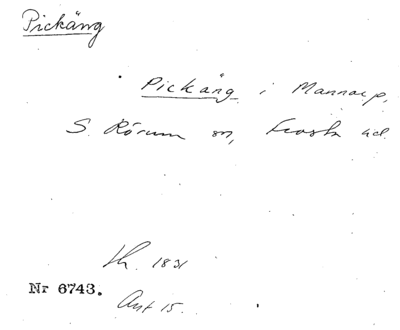 Pickäng
Pickäng i Mannarp,
S. Rörum sn, Frosta hd.
Lh. 1831
Nr 6743.
Ant 15.